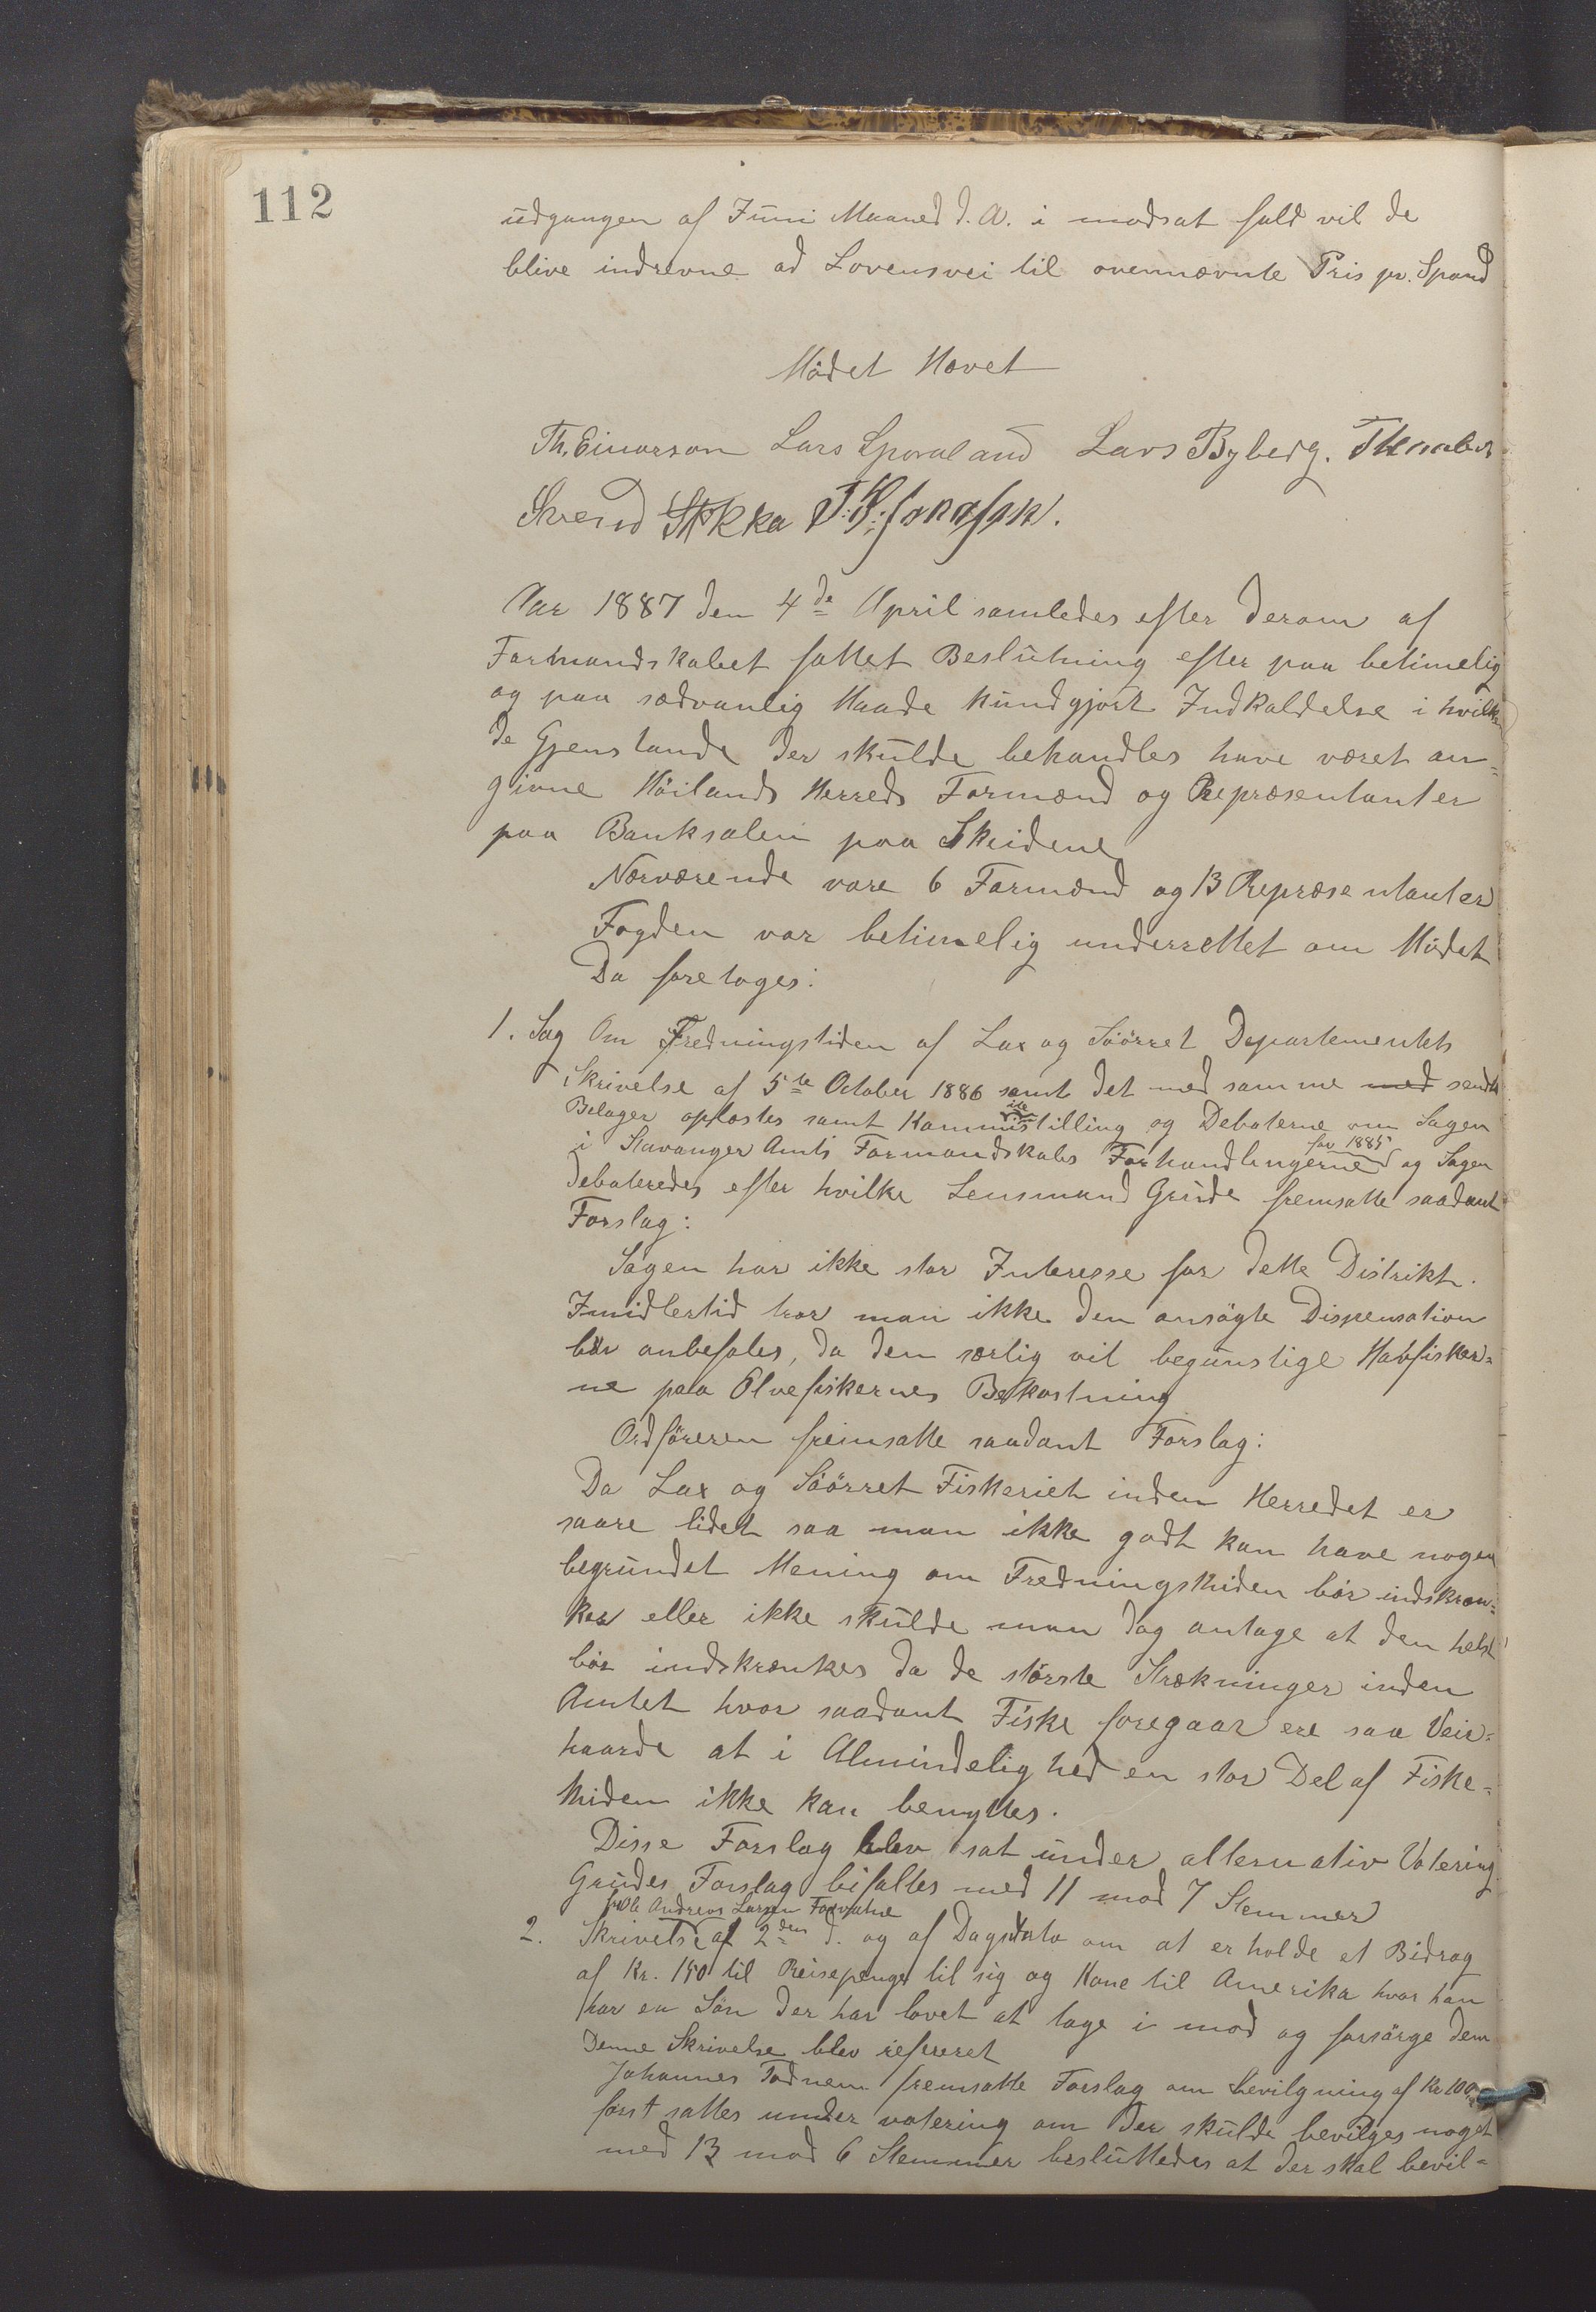 112
udgangen af Juni Maaned d. A. i modsat fald vil de
blive indrevne ad Lovensvei til ovennævnte Pris pr. Spand
Mødet Hævet
Th. Einarson Lars Sporaland Lars Byberg.
Svend Stokka T. S. Jonassen.
Aar 1887 den 4de April samledes efter derom af
Formandskabet fattet Beslutning efter paa betimelig
og paa sædvanlig Maade kundgjort Indkaldelse i hvilke
de Gjenstande der skulde behandles have været an-
givne Höilands Herreds Formænd og Repræsentanter
paa Banksalen paa Skeidene
Nærværende vare 6 Formænd og 13 Repræsentanter
Fogden var betimelig underrettet om Mödet
Da foretoges:
1. Sag Om Fredningstiden af Lax og Söörret Departementets
Skrivelse af 5te October 1886 samt det med samme med sendte
Belager oplæstes samt Kommiteistilling og Debaterne om Sagen
i Stavanger Amts Formandskabs Forhandlingerne for 1885 og Sagen
debateredes efter hvilke Lensmand Grude fremsatte saadant
Forslag:
Sagen har ikke stor Interesse for dette Distrikt.
Imidlertid tror man ikke den ansögte Dispensation
bör anbefales, da den særlig vil begunstige Havfisker-
ne paa Elvefiskernes Bekostning
Ordföreren fremsatte saadant Forslag:
Da Lax og Söörret Fiskeriet inden Herredet er
saare lidet saa man ikke godt kan have nogen
begrundet Mening om Fredningsthiden bör indskræn-
kes eller ikke skulde man dog antage at den helst
bör indskrænkes da de störste Strækninger inden
Amtet hvor saadant Fiske foregaar ere saa Veir-
haarde at i Almindelighed en stor Del af Fiske-
thiden ikke kan benyttes.
Disse Forslag blev sat under alternativ Votering
Grudes Forslag bifaltes med 11 mod 7 Stemmer
fra Ole Andreas Larsen
2. Skrivelse af 2den d. og af Dagsdato om at erholde et Bidrag
af Kr. 150 til Reisepenge til sig og Kone til Amerika hvor han
har en Sön der har lovet at tage i mod og forsörge dem
Denne Skrivelse blev refereret
Johannes Tødnem fremsatte Forslag om bevilgning af Kr 100
först sattes under votering om der skulde bevilges noget
med 13 mod 6 Stemmer besluttedes at der skal bevil-